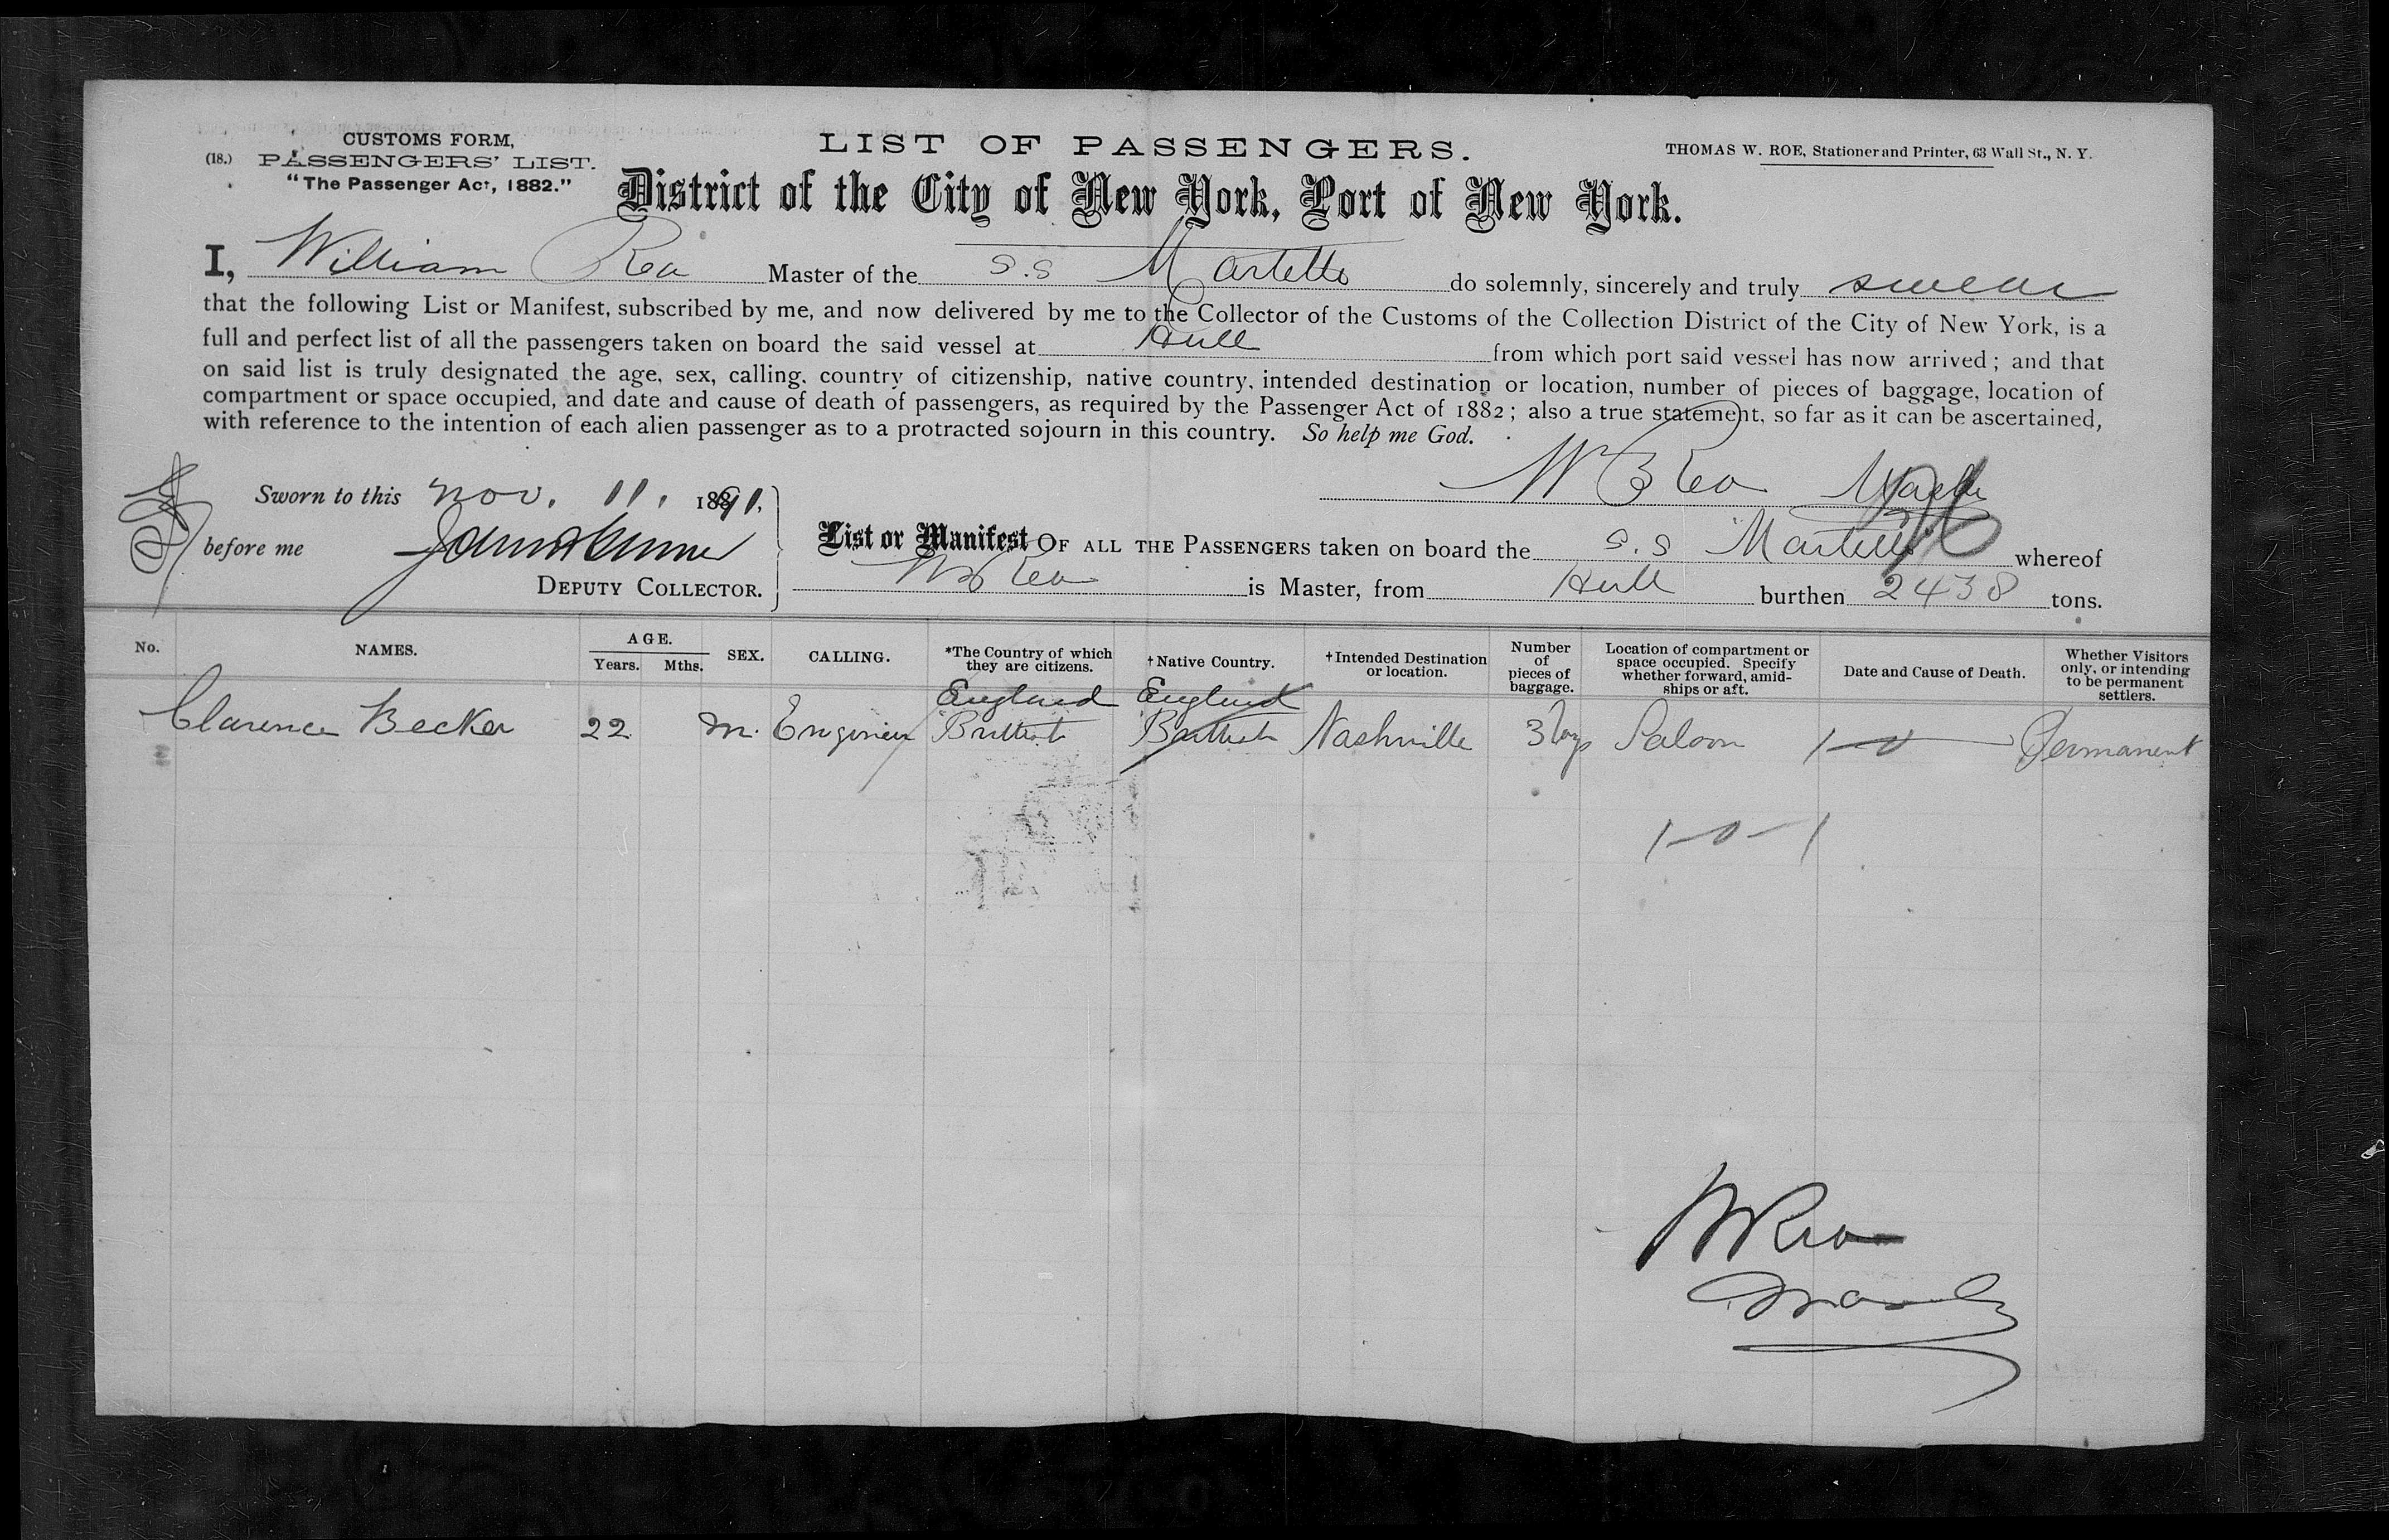 CUSTOMS FORM,
(18.) PASSENGERS' LIST.
"The Passenger Act, 1882."
LIST OF PASSENGERS.
THOMAS W. ROE, Stationer and Printer, 63 Wall St., N. Y.
District of the City of New York, Port of New York.
I, William Rea Master of the S.S Martello do solemnly, sincerely and truly swear
that the following List or Manifest, subscribed by me, and now delivered by me to the Collector of the Customs of the Collection District of the City of New York, is a
full and perfect list of all the passengers taken on board the said vessel at Hull from which port said vessel has now arrived; and that
on said list is truly designated the age, sex, calling, country of citizenship, native country, intended destination or location, number of pieces of baggage, location of
compartment or space occupied, and date and cause of death of passengers, as required by the Passenger Act of 1882; also a true statement, so far as it can be ascertained,
with reference to the intention of each alien passenger as to a protracted sojourn in this country. So help me God.
W Rea
Sworn to this Nov. 11, 1891,
before me
DEPUTY COLLECTOR.
List or Manifest OF ALL THE PASSENGERS taken on board the S.S Martello whereof
W Rea is Master, from Hull burthen 2438 tons.
No. NAMES. AGE. Years. Mths. SEX. CALLING. *The Country of which they are citizens. †Native Country. †Intended Destination or location. Number of pieces of baggage. Location of compartment or space occupied. Specify whether forward, amidships or aft. Date and Cause of Death. Whether Visitors only, or intending to be permanent settlers.
England England
Clarence Becker 22 M. Engineer British British Nashville 3 Saloon 1-0- Permanent
1-0-1
W Rea